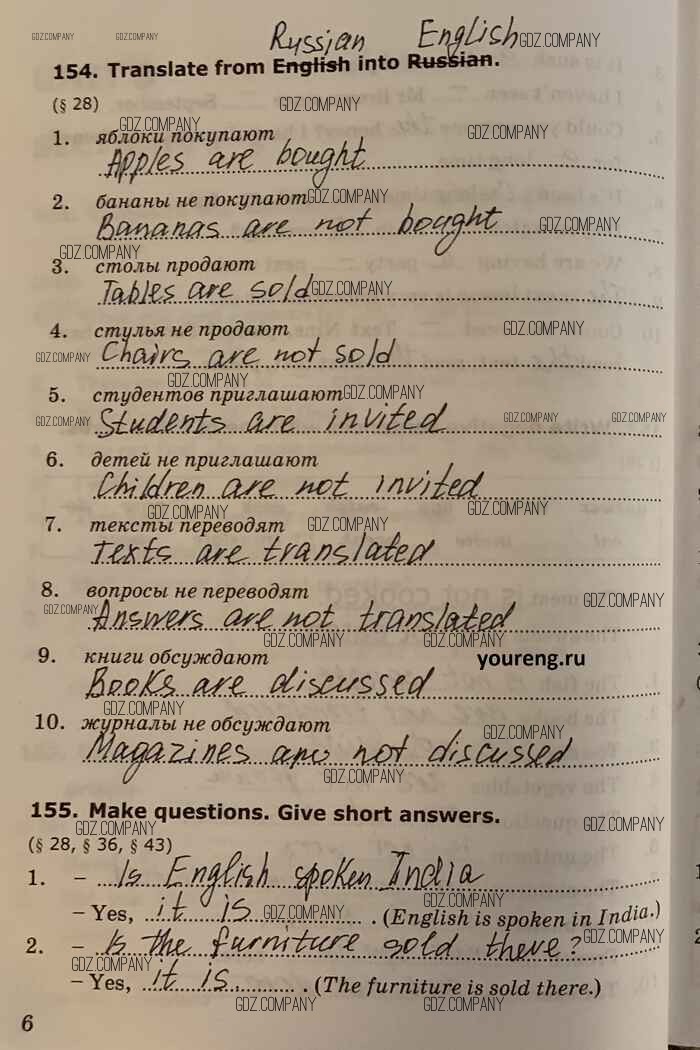 GDZ.COMPANY GDZ.COMPANY Russian English GDZ.COMPANY
154. Translate from English into Russian.
(§ 28) GDZ.COMPANY
GDZ.COMPANY
1. яблоки покупают GDZ.COMPANY
Apples are bought
2. бананы не покупают GDZ.COMPANY
Bananas are not bought GDZ.COMPANY
GDZ.COMPANY
3. столы продают
Tables are sold GDZ.COMPANY
4. стулья не продают GDZ.COMPANY
GDZ.COMPANY Chairs are not sold
GDZ.COMPANY
5. студентов приглашают GDZ.COMPANY
GDZ.COMPANY Students are invited GDZ.COMPANY GDZ.COMPANY
6. детей не приглашают
Children are not invited
GDZ.COMPANY GDZ.COMPANY
7. тексты переводят GDZ.COMPANY
Texts are translated
8. вопросы не переводят GDZ.COMPANY
GDZ.COMPANY Answers are not translated
GDZ.COMPANY GDZ.COMPANY
9. книги обсуждают youreng.ru
Books are discussed
GDZ.COMPANY
10. журналы не обсуждают GDZ.COMPANY
Magazines are not discussed
GDZ.COMPANY
155. Make questions. Give short answers.
GDZ.COMPANY GDZ.COMPANY
(§ 28, § 36, § 43)
1. – Is English spoken India
GDZ.COMPANY
– Yes, it is GDZ.COMPANY . (English is spoken in India.)
2. – Is the furniture sold there? GDZ.COMPANY
GDZ.COMPANY
– Yes, it is . (The furniture is sold there.)
GDZ.COMPANY GDZ.COMPANY
6